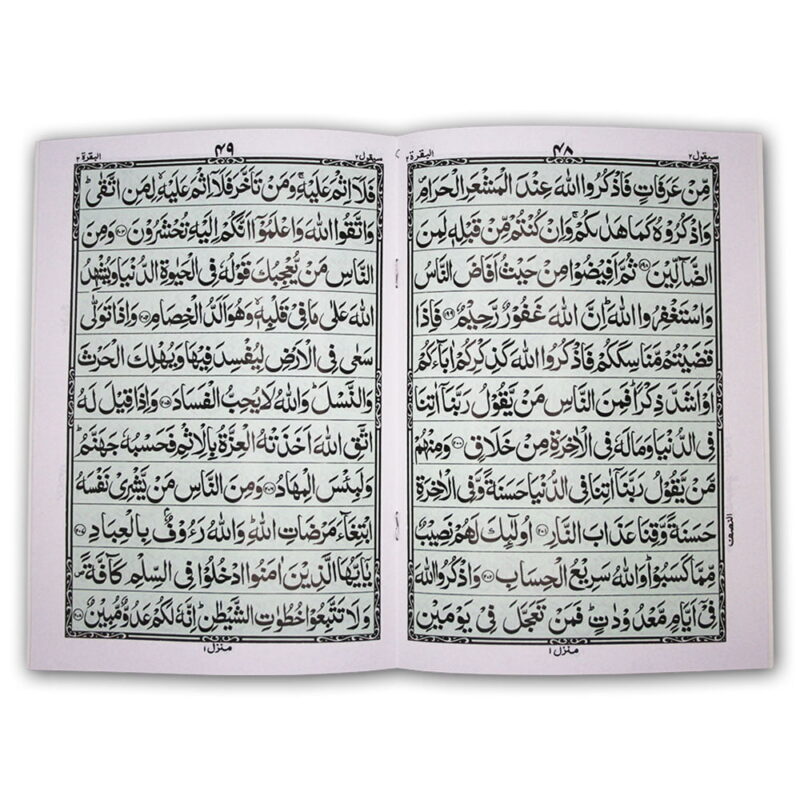 سيقول ٢
٤٨
البقرة ٢
مِّنْ عَرَفَاتٍ فَاذْكُرُوا اللّٰهَ عِنْدَ الْمَشْعَرِ الْحَرَامِ
وَاذْكُرُوْهُ كَمَا هَدٰىكُمْ ۚ وَاِنْ كُنْتُمْ مِّنْ قَبْلِهٖ لَمِنَ
الضَّآلِّيْنَ ﴿۱۹۸﴾ ثُمَّ اَفِيْضُوْا مِنْ حَيْثُ اَفَاضَ النَّاسُ
وَاسْتَغْفِرُوا اللّٰهَ ؕ اِنَّ اللّٰهَ غَفُوْرٌ رَّحِيْمٌ ﴿۱۹۹﴾ فَاِذَا
قَضَيْتُمْ مَّنَاسِكَكُمْ فَاذْكُرُوا اللّٰهَ كَذِكْرِكُمْ اٰبَآءَكُمْ
اَوْ اَشَدَّ ذِكْرًا ؕ فَمِنَ النَّاسِ مَنْ يَّقُوْلُ رَبَّنَاۤ اٰتِنَا
فِى الدُّنْيَا وَمَا لَهٗ فِى الْاٰخِرَةِ مِنْ خَلَاقٍ ﴿۲۰۰﴾ وَمِنْهُمْ
مَّنْ يَّقُوْلُ رَبَّنَاۤ اٰتِنَا فِى الدُّنْيَا حَسَنَةً وَّفِى الْاٰخِرَةِ
حَسَنَةً وَّقِنَا عَذَابَ النَّارِ ﴿۲۰۱﴾ اُولٰٓئِكَ لَهُمْ نَصِيْبٌ
مِّمَّا كَسَبُوْا ؕ وَاللّٰهُ سَرِيْعُ الْحِسَابِ ﴿۲۰۲﴾ وَاذْكُرُوا اللّٰهَ
فِىْۤ اَيَّامٍ مَّعْدُوْدٰتٍ ؕ فَمَنْ تَعَجَّلَ فِىْ يَوْمَيْنِ
النصف
منزل ١
سيقول ٢
٤٩
البقرة ٢
فَلَاۤ اِثْمَ عَلَيْهِ ۚ وَمَنْ تَاَخَّرَ فَلَاۤ اِثْمَ عَلَيْهِ ۙ لِمَنِ اتَّقٰى ؕ
وَاتَّقُوا اللّٰهَ وَاعْلَمُوْۤا اَنَّكُمْ اِلَيْهِ تُحْشَرُوْنَ ﴿۲۰۳﴾ وَمِنَ
النَّاسِ مَنْ يُّعْجِبُكَ قَوْلُهٗ فِى الْحَيٰوةِ الدُّنْيَا وَيُشْهِدُ
اللّٰهَ عَلٰى مَا فِىْ قَلْبِهٖ ۙ وَهُوَ اَلَدُّ الْخِصَامِ ﴿۲۰۴﴾ وَاِذَا تَوَلّٰى
سَعٰى فِى الْاَرْضِ لِيُفْسِدَ فِيْهَا وَيُهْلِكَ الْحَرْثَ
وَالنَّسْلَ ؕ وَاللّٰهُ لَا يُحِبُّ الْفَسَادَ ﴿۲۰۵﴾ وَاِذَا قِيْلَ لَهُ
اتَّقِ اللّٰهَ اَخَذَتْهُ الْعِزَّةُ بِالْاِثْمِ فَحَسْبُهٗ جَهَنَّمُ ؕ
وَلَبِئْسَ الْمِهَادُ ﴿۲۰۶﴾ وَمِنَ النَّاسِ مَنْ يَّشْرِىْ نَفْسَهُ
ابْتِغَآءَ مَرْضَاتِ اللّٰهِ ؕ وَاللّٰهُ رَءُوْفٌۢ بِالْعِبَادِ ﴿۲۰۷﴾
يٰۤاَيُّهَا الَّذِيْنَ اٰمَنُوا ادْخُلُوْا فِى السِّلْمِ كَآفَّةً ۪
وَلَا تَتَّبِعُوْا خُطُوٰتِ الشَّيْطٰنِ ؕ اِنَّهٗ لَكُمْ عَدُوٌّ مُّبِيْنٌ ﴿۲۰۸﴾
منزل ١